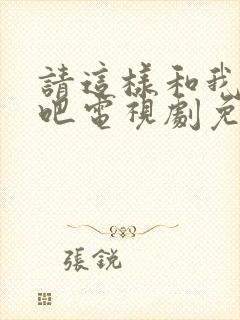 請這樣和我
吧電視劇免
張銳